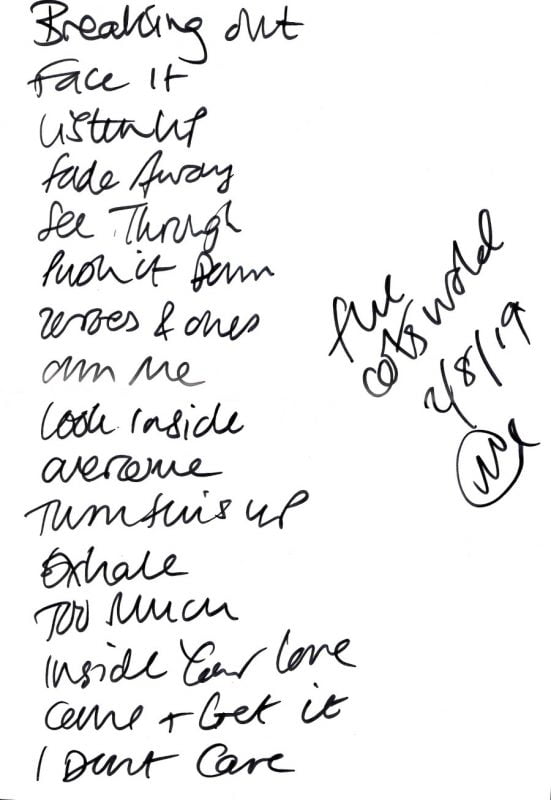 Breaking out
Face It
Listen Up
Fade Away
See Through
Push it Down
zeroes & ones
own me
look inside
overcome
Turn this up
Exhale
TOO Much
Inside Your Love
Come + Get it
I Dont Care
the
cotswold
2/8/19